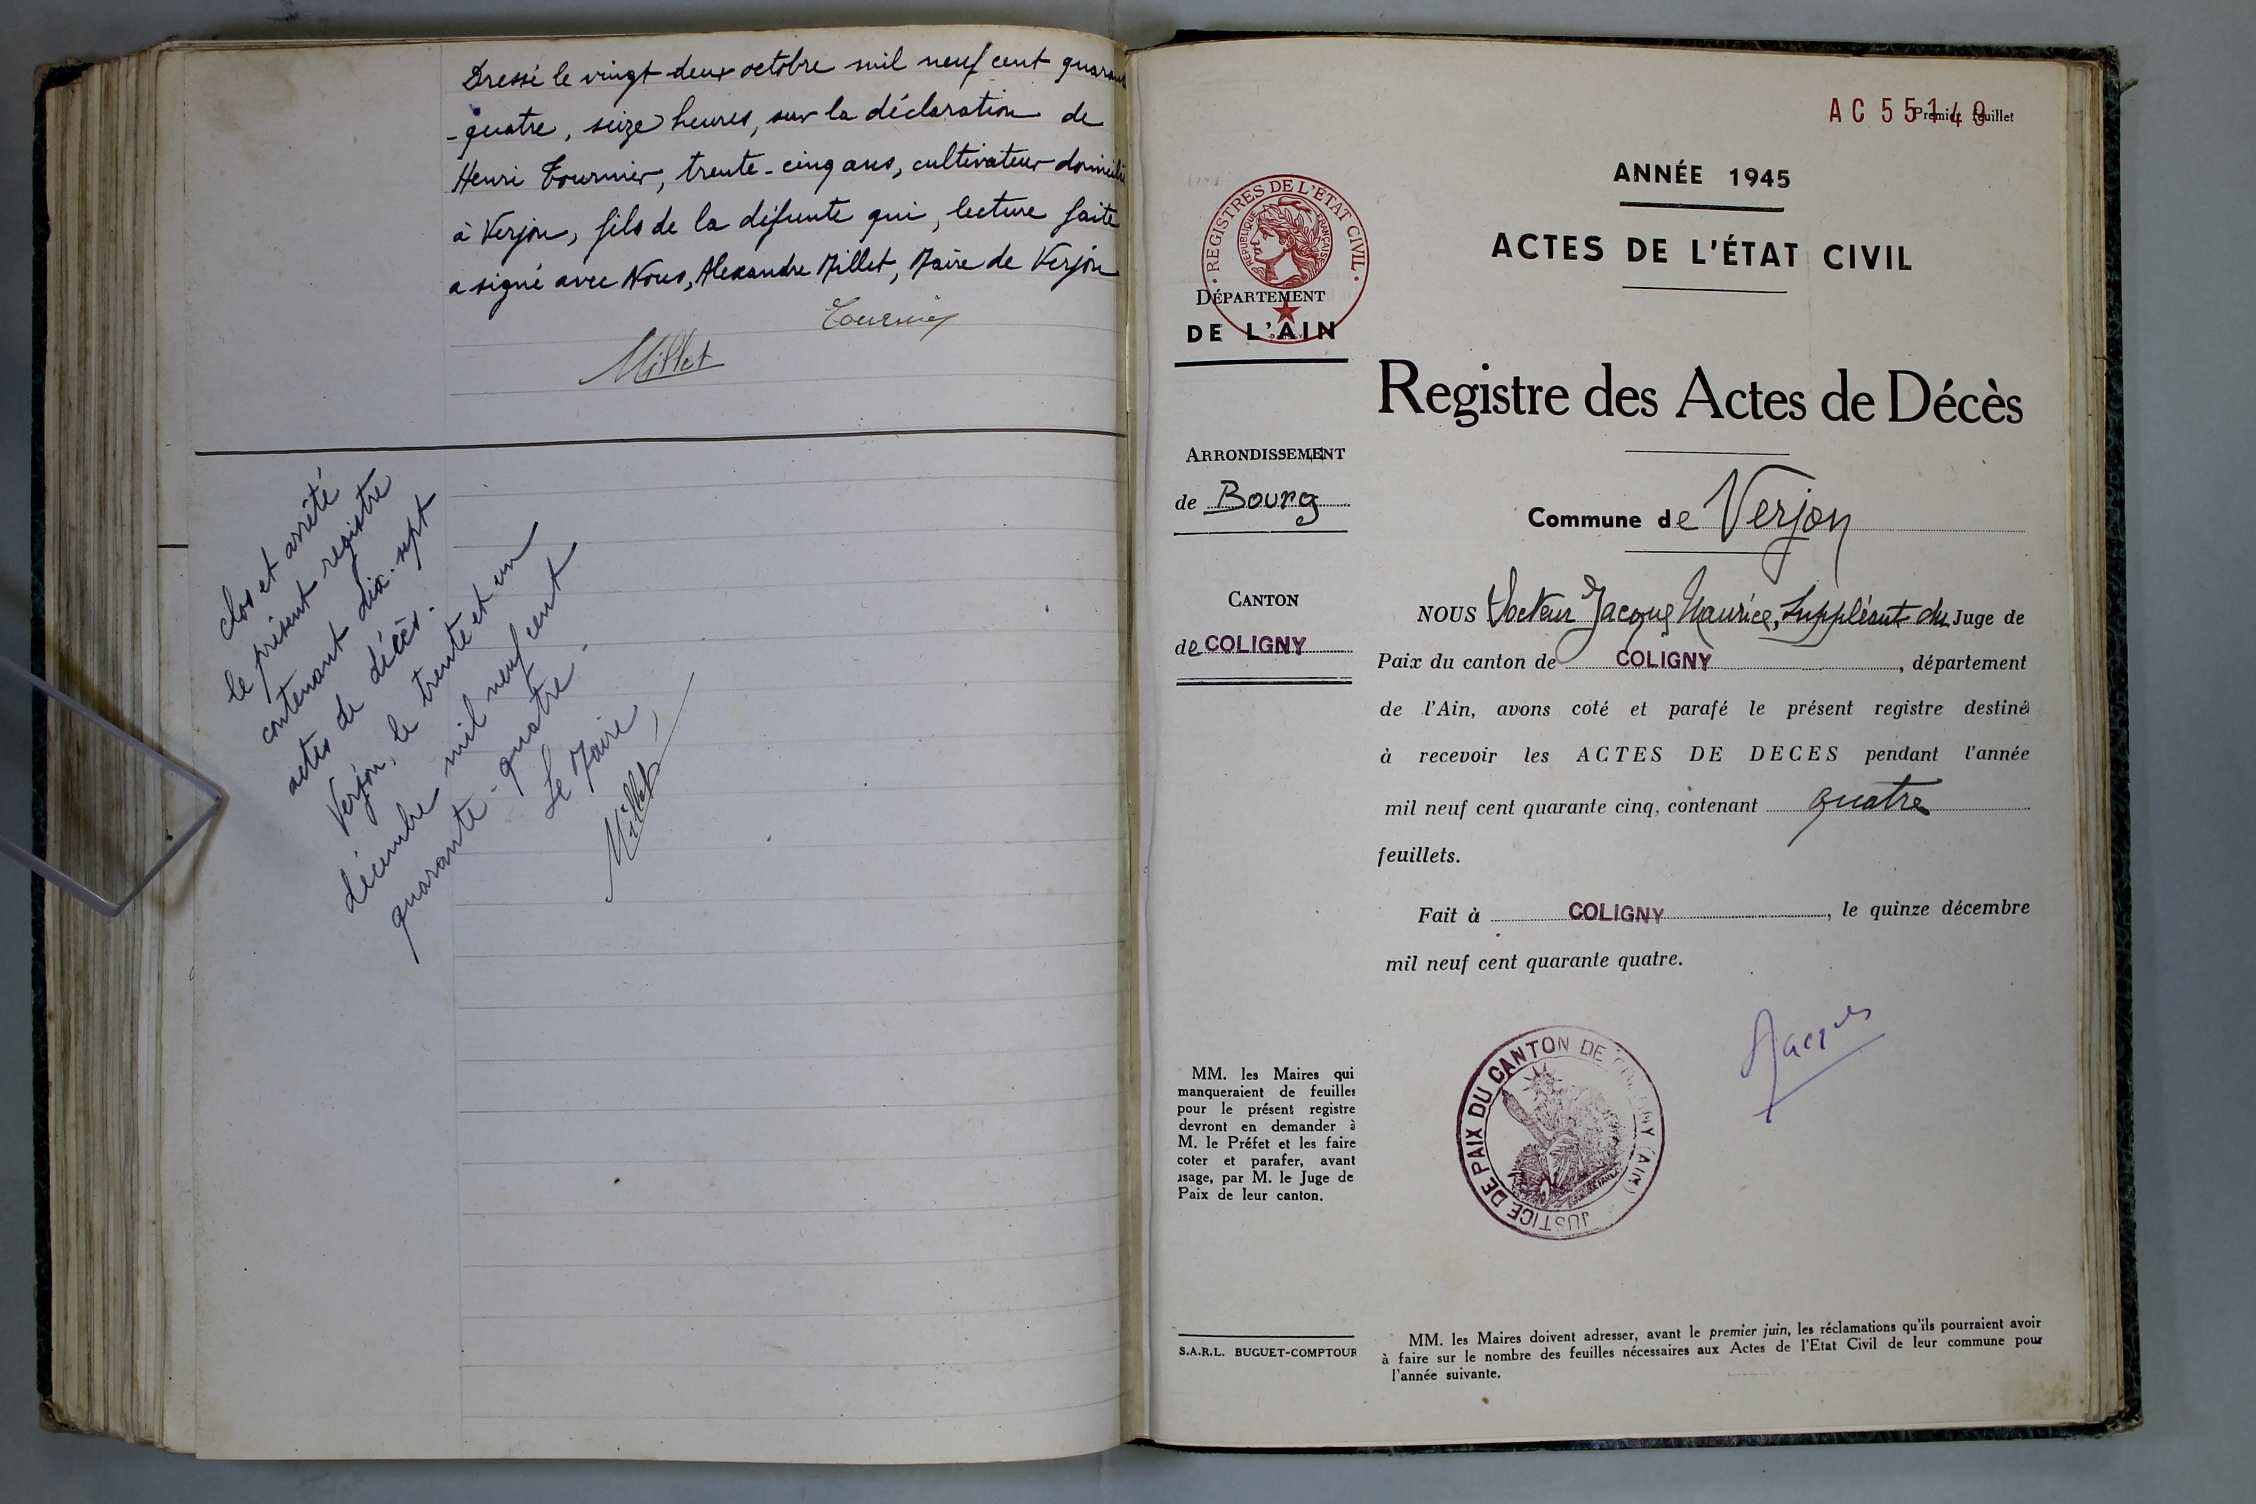 Dressé le vingt-deux octobre mil neuf cent quarante
-quatre, seize heures, sur la déclaration de
Henri Tournier, trente-cinq ans, cultivateur domicilié
à Verjon, fils de la défunte qui, lecture faite
a signé avec Nous, Alexandre Millet, Maire de Verjon
Tournier
Millet
clos et arrêté
le présent registre
contenant dix-sept
actes de décès.
Verjon, le trente et un
décembre mil neuf cent
quarante-quatre.
Le Maire,
Millet
AC 55149
Premier feuillet
ANNÉE 1945
ACTES DE L'ÉTAT CIVIL
REGISTRES DE L'ETAT CIVIL
REPUBLIQUE FRANÇAISE
DÉPARTEMENT
DE L'AIN
Registre des Actes de Décès
ARRONDISSEMENT
de Bourg
Commune de Verjon
CANTON
de COLIGNY
NOUS Docteur Jacques Maurice, Suppléant du Juge de
Paix du canton de COLIGNY, département
de l'Ain, avons coté et parafé le présent registre destiné
à recevoir les ACTES DE DECES pendant l'année
mil neuf cent quarante cinq, contenant quatre
feuillets.
Fait à COLIGNY, le quinze décembre
mil neuf cent quarante quatre.
Jacques
JUSTICE DE PAIX DU CANTON DE COLIGNY (AIN)
MM. les Maires qui
manqueraient de feuilles
pour le présent registre
devront en demander à
M. le Préfet et les faire
coter et parafer, avant
usage, par M. le Juge de
Paix de leur canton.
S.A.R.L. BUGUET-COMPTOUR
MM. les Maires doivent adresser, avant le premier juin, les réclamations qu'ils pourraient avoir
à faire sur le nombre des feuilles nécessaires aux Actes de l'Etat Civil de leur commune pour
l'année suivante.